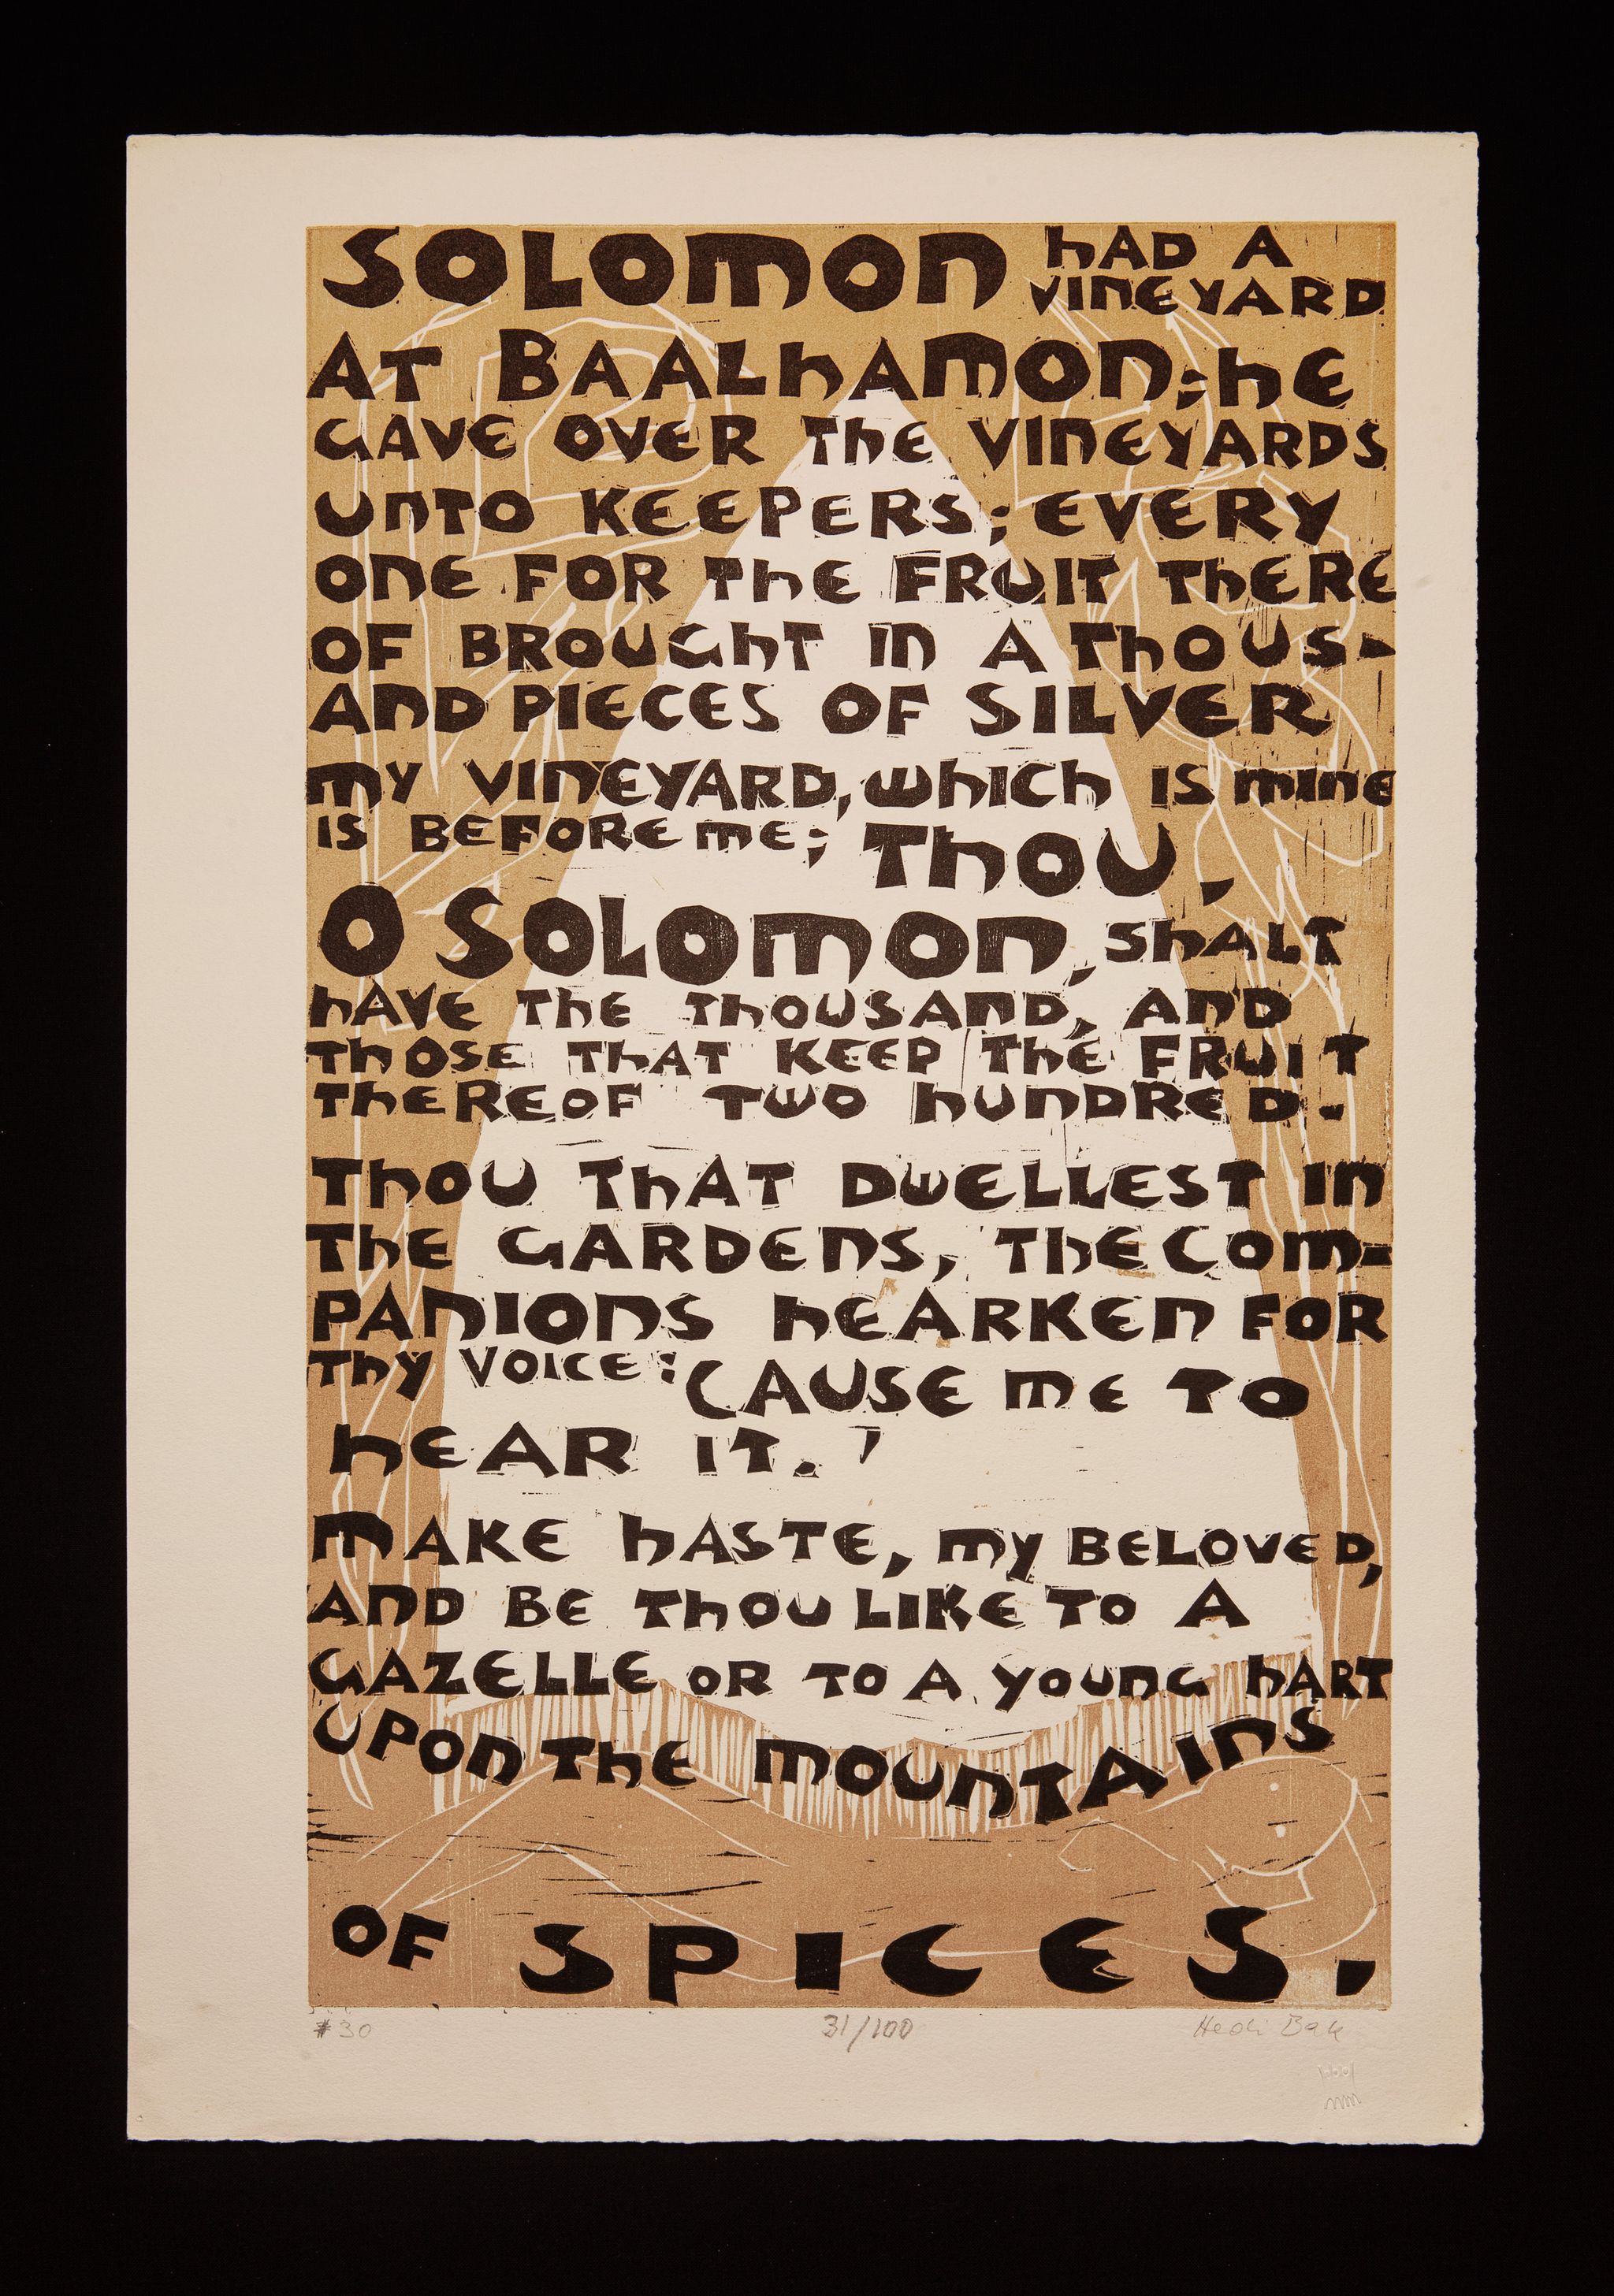 SOLOMON HAD A
VINEYARD
AT BAALHAMON; HE
GAVE OVER THE VINEYARDS
UNTO KEEPERS; EVERY
ONE FOR THE FRUIT THERE
OF BROUGHT IN A THOUS-
AND PIECES OF SILVER
MY VINEYARD, WHICH IS MINE
IS BEFORE ME; THOU,
O SOLOMON, SHALT
HAVE THE THOUSAND, AND
THOSE THAT KEEP THE FRUIT
THEREOF TWO HUNDRED.
THOU THAT DWELLEST IN
THE GARDENS, THE COM-
PANIONS HEARKEN FOR
THY VOICE: CAUSE ME TO
HEAR IT.'
MAKE HASTE, MY BELOVED,
AND BE THOU LIKE TO A
GAZELLE OR TO A YOUNG HART
UPON THE MOUNTAINS
OF SPICES.
#30 31/100 Heidi